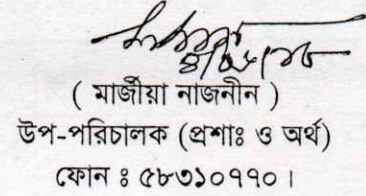 ( মার্জীয়া নাজনীন )
উপ-পরিচালক (প্রশাঃ ও অর্থ)
ফোন ঃ ৫৮৩১০৭৭০।